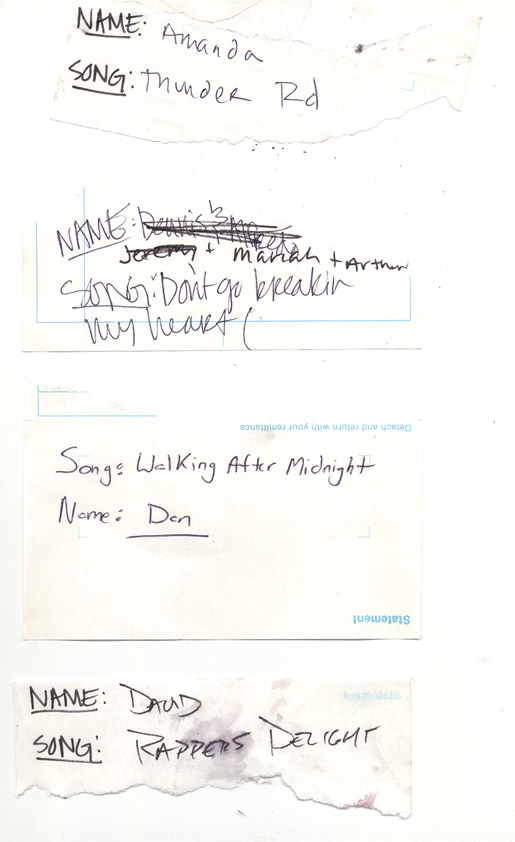 NAME: Amanda
SONG: Thunder Rd
NAME:
Jeremy + Mariah + Arthur
SONG: Don't go breakin
my heart (
Detach and return with your remittance
Song: Walking After Midnight
Name: Dan
Statement
Statement
NAME: DAVID
SONG: RAPPERS DELIGHT